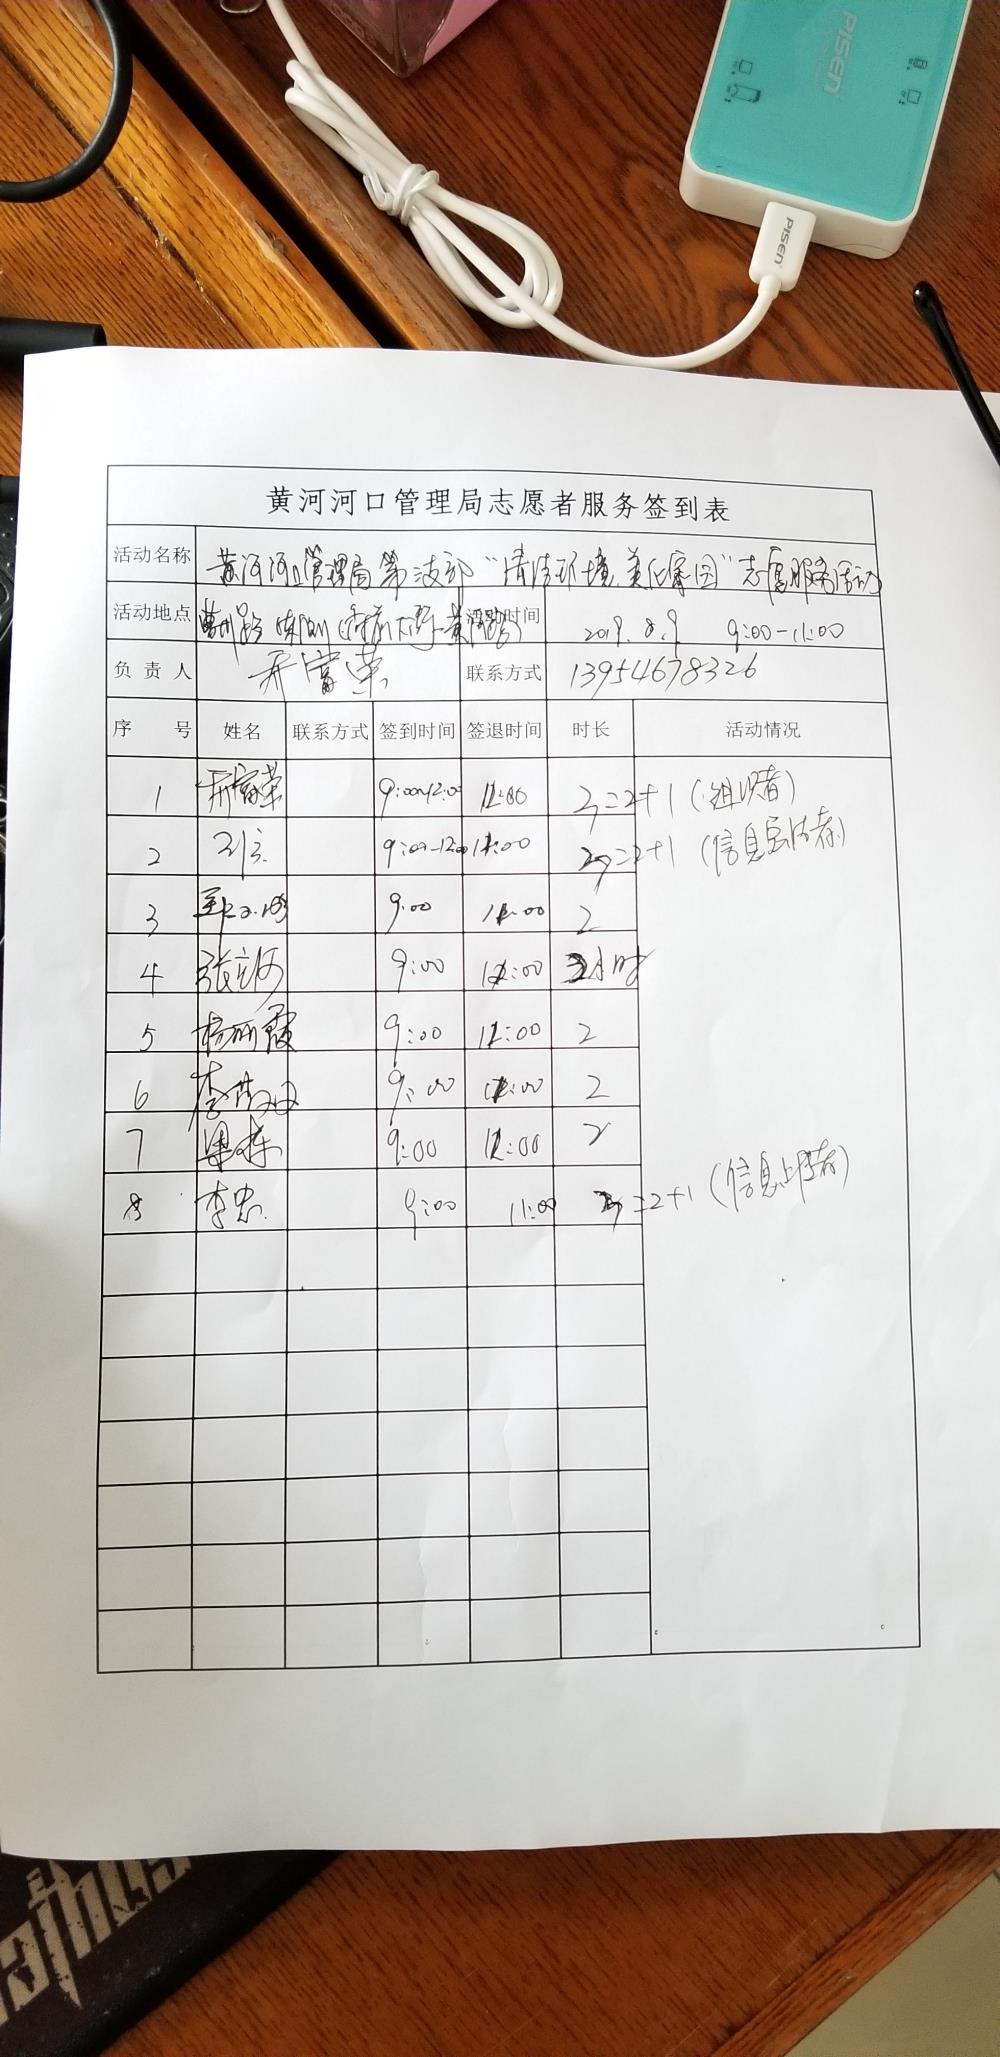 PISEN
PISEN
黄河河口管理局志愿者服务签到表
活动名称 黄河河口管理局 "清洁环境,美化家园"志愿服务活动
活动地点 时间 2019.8.9 9:00-11:00
负责人 开富荣 联系方式 13954678326
序号 姓名 联系方式 签到时间 签退时间 时长 活动情况
1 开富荣 9:00-12:00 11:00 3=2+1(组织者)
2 9:00-12:00 11:00 3=2+1(信息宣传者)
3 9:00 11:00 2
4 张 9:00 11:00 2小时
5 杨丽霞 9:00 11:00 2
6 李 9:00 11:00 2
7 梁栋 9:00 11:00 2
8 李忠 9:00 11:00 3=2+1(信息上传者)